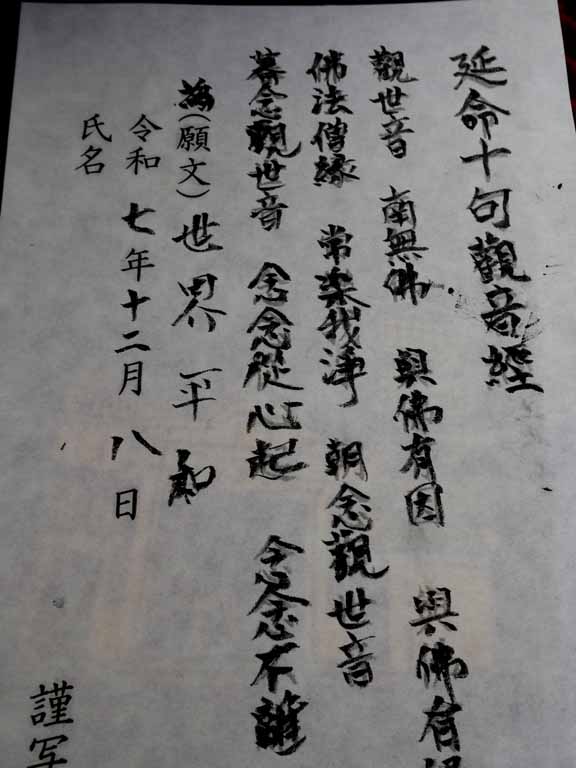 延命十句觀音經
觀世音 南無佛 與佛有因 與佛有
佛法僧緣 常樂我淨 朝念觀世音
暮念觀世音 念念從心起 念念不離
為(願文)世界平和
令和七年十二月八日
氏名
謹写